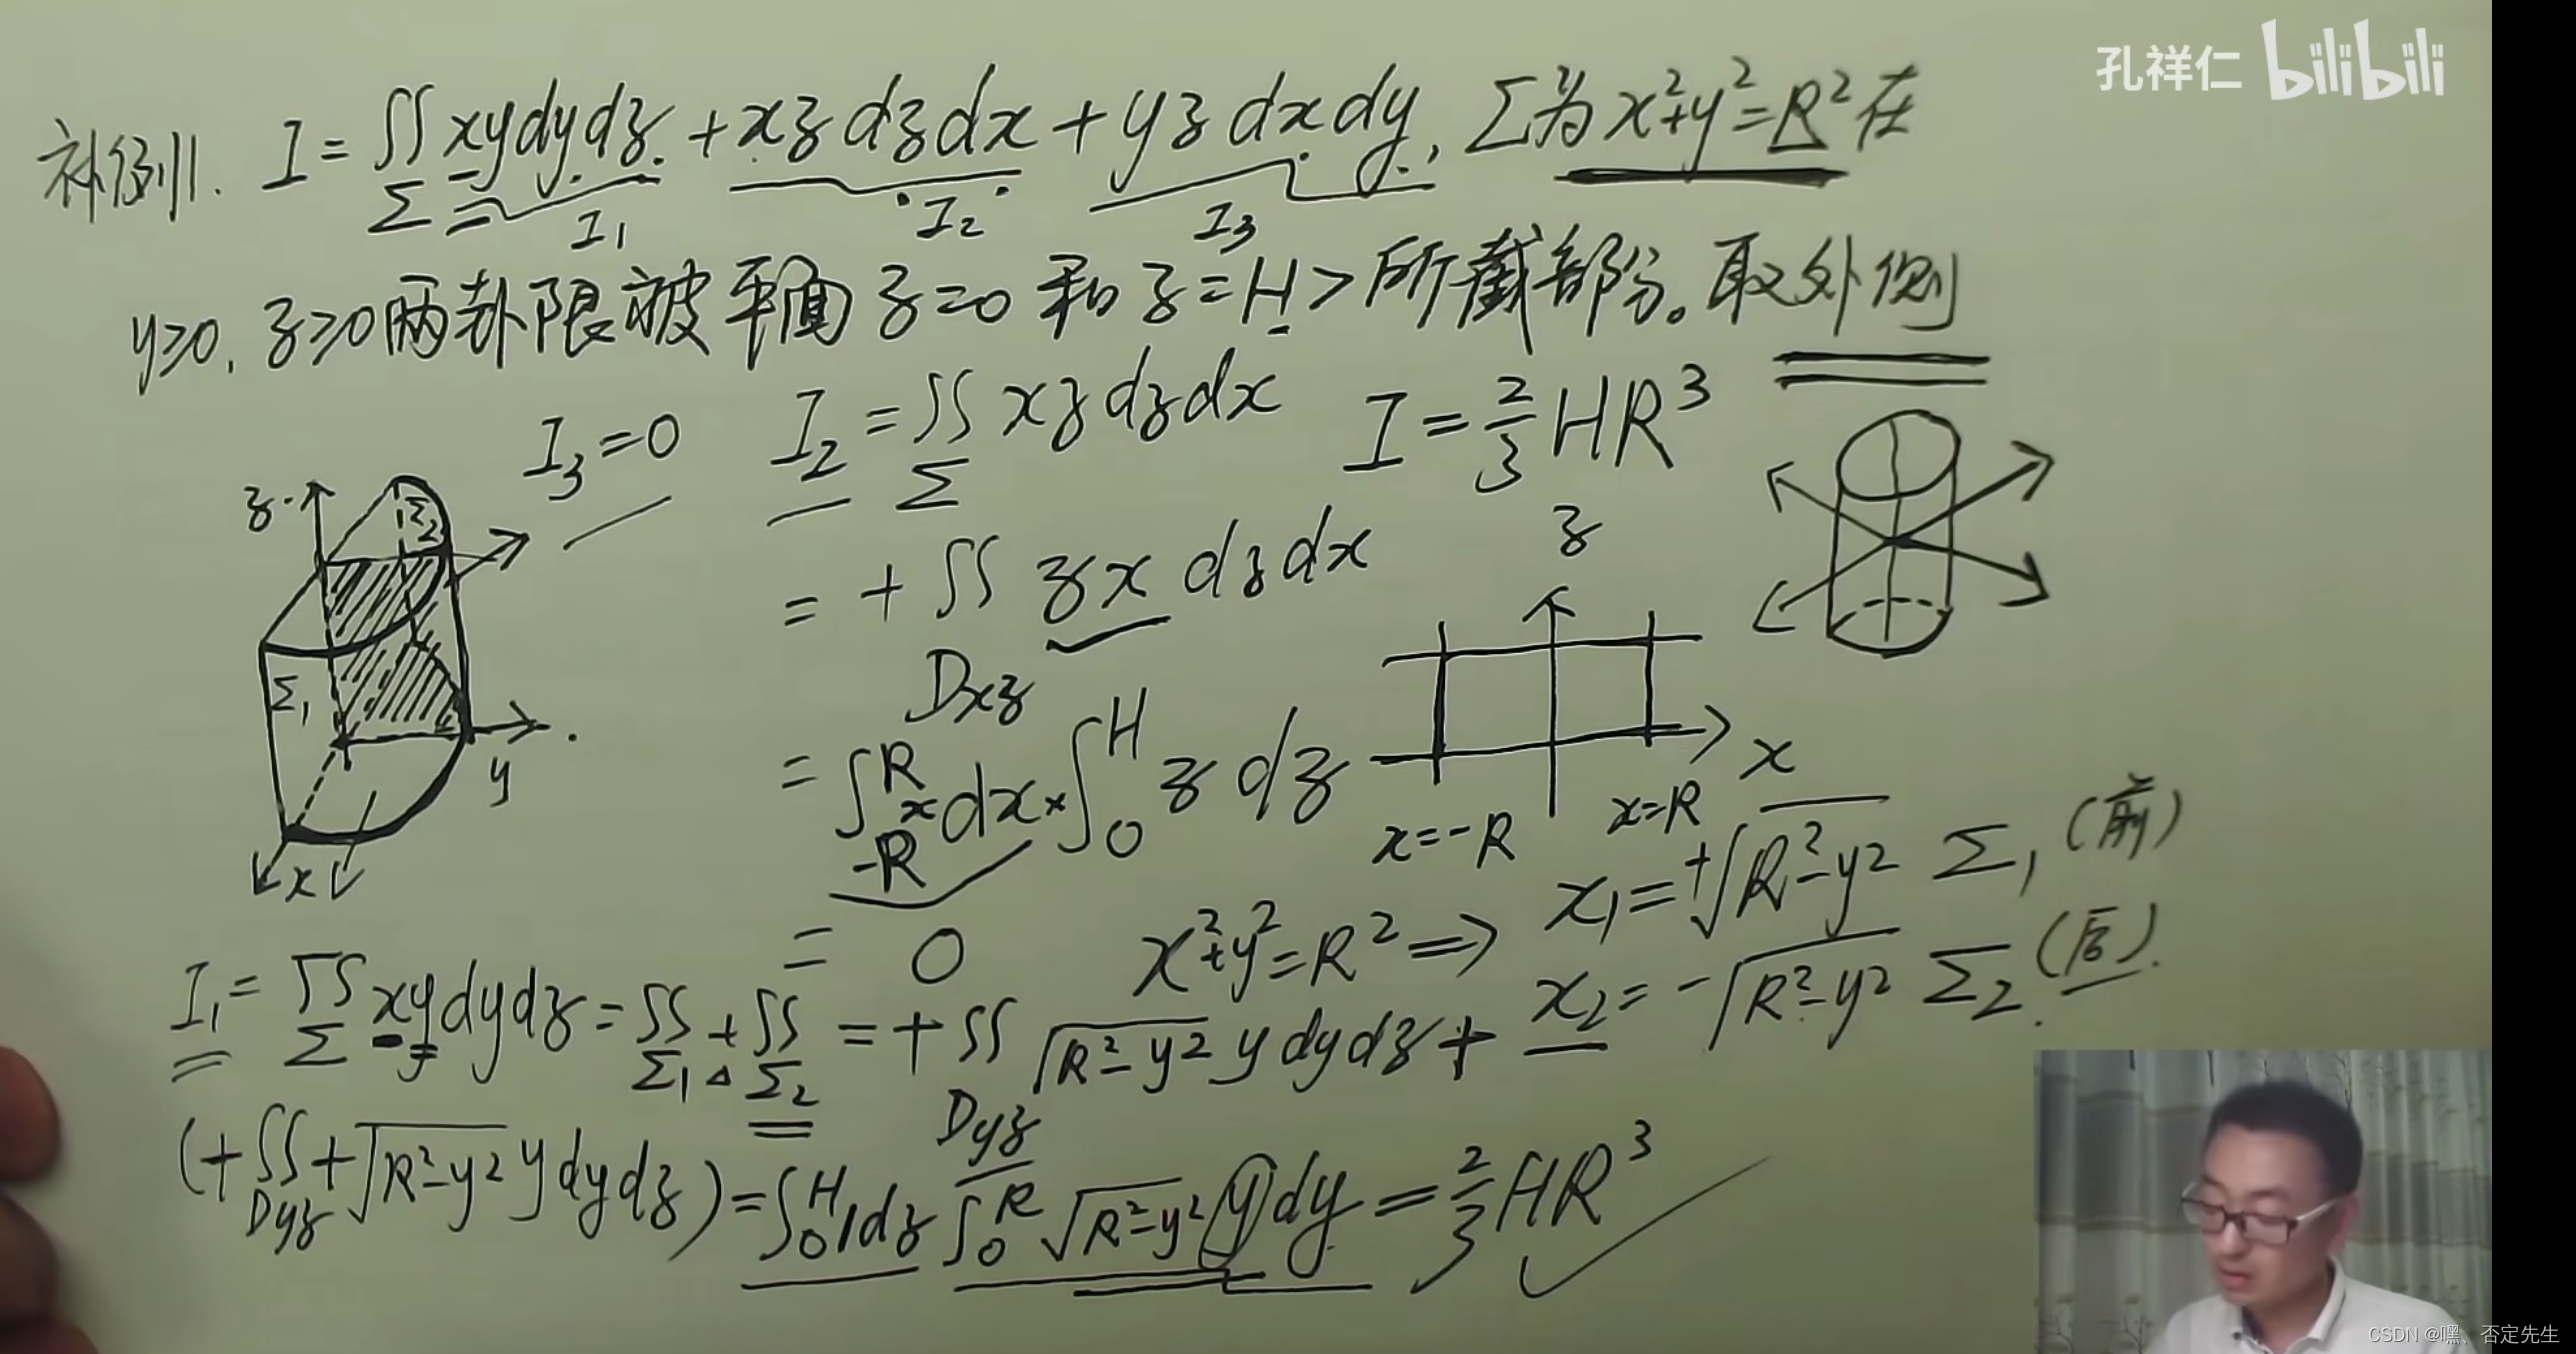 孔祥仁 bilibili
补例1. I = ∬_Σ xydydz + xz dzdx + yz dxdy, Σ为 x²+y²=R² 在
I₁ I₂ I₃
y≥0, z≥0两卦限被平面 z=0 和 z=H> 所截部分。取外侧
I₃=0 I₂ = ∬_Σ xz dzdx I = 2/3 HR³
z Σ₂ Σ₁ y x
= + ∬_Dxz zx dzdx
z x x=-R x=R
= ∫_{-R}^{R} x dx × ∫_0^H z dz
= 0 x²+y²=R² ⇒ x₁ = +√(R²-y²) Σ₁ (前)
x₂ = -√(R²-y²) Σ₂ (后).
I₁ = ∬_Σ xydydz = ∬_Σ₁ + ∬_Σ₂ = + ∬_Dyz √(R²-y²) y dydz +
(+∬_Dyz +√(R²-y²) y dydz) = ∫_0^H 1dz ∫_0^R √(R²-y²) y dy = 2/3 HR³
CSDN @嘿、否定先生